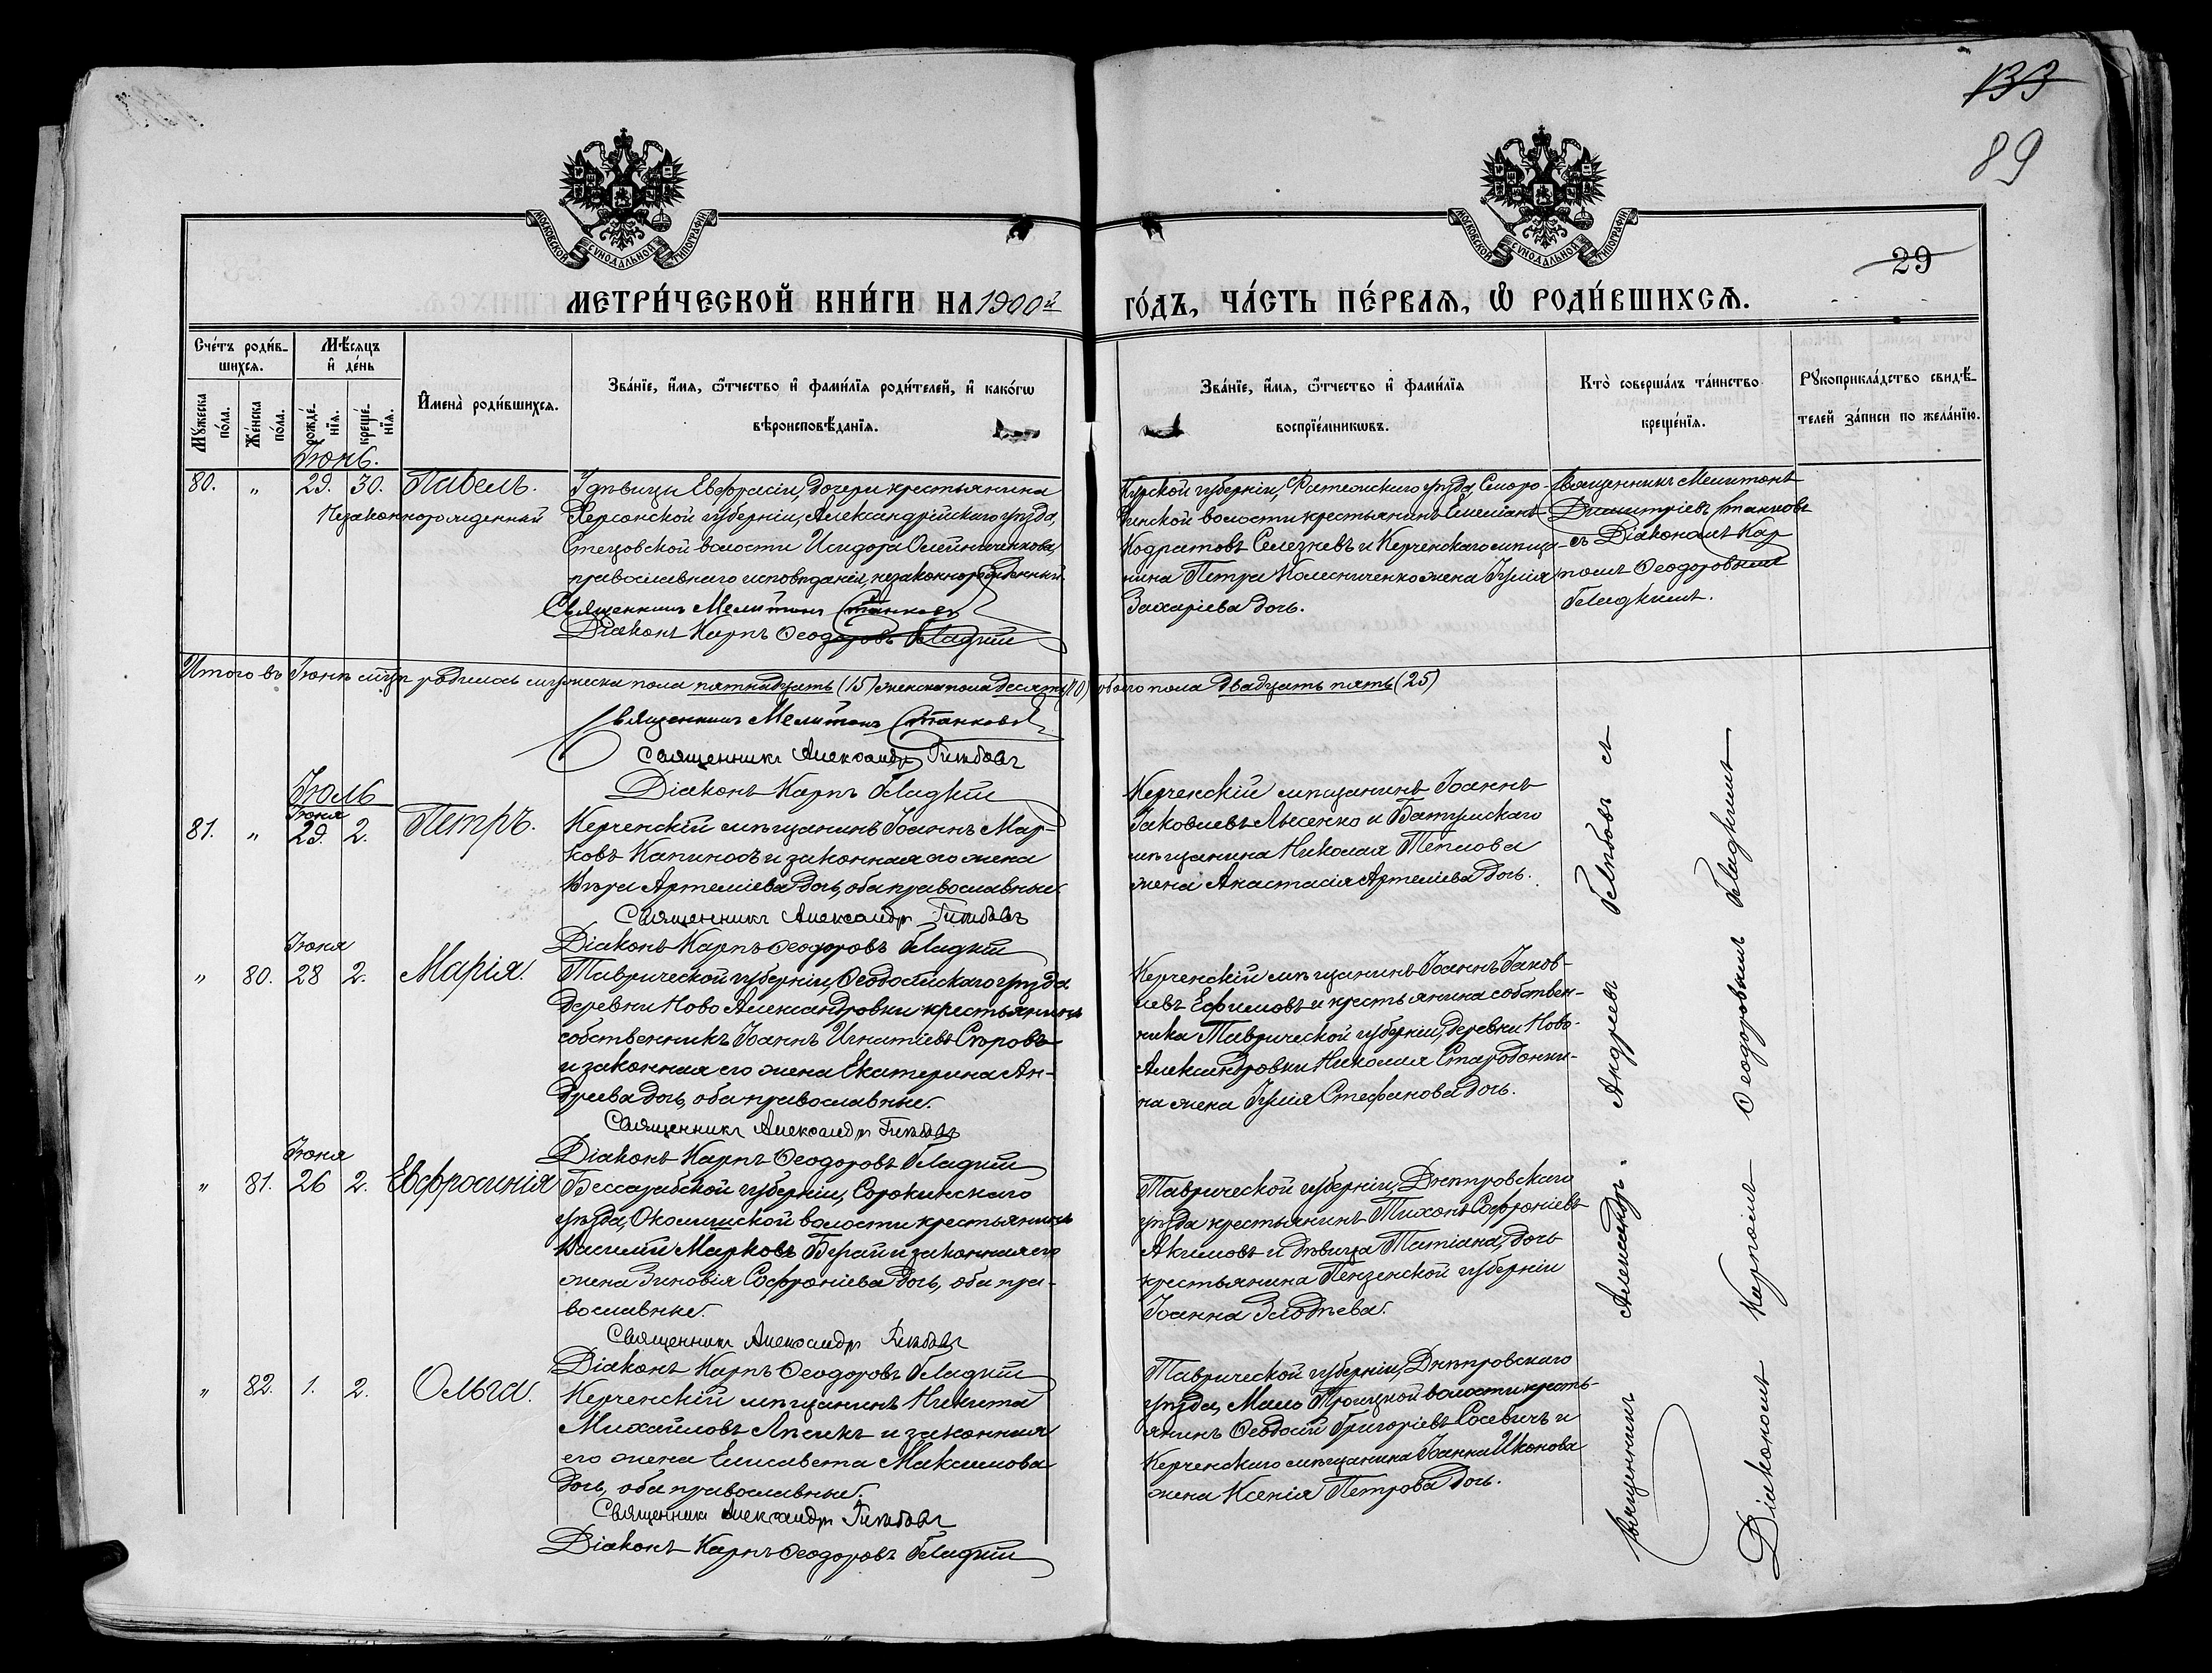 133
89
МОСКОВСКОЙ СѴНОДАЛЬНОЙ ТИПОГРАФІИ
МОСКОВСКОЙ СѴНОДАЛЬНОЙ ТИПОГРАФІИ
29
МЕТРИ́ЧЕСКОЙ КНИ́ГИ НА 1900й ГО́ДЪ, ЧА́СТЬ ПЕ́РВАЯ, Ѿ РОДИ́ВШИХСѦ.
Сче́тъ роди́в-
шихсѧ.
Мѣ́сѧцъ
и҆ де́нь
Мꙋ́жеска по́ла.
Же́нска по́ла.
рожде́-нїѧ.
креще́-нїѧ.
И҆мена̀ роди́вшихсѧ.
Зва́нїе, и҆́мѧ, ѻ҆́тчество и҆ фами́лїѧ роди́телей, и҆ како́гѡ
вѣроисповѣ́данїѧ.
Зва́нїе, и҆́мѧ, ѻ҆́тчество и҆ фами́лїѧ
воспрїе́мникѡвъ.
Кто̀ соверша́лъ та́инство
креще́нїѧ.
Рꙋкоприкла́дство свидѣ́-
телей за́писи по жела́нїю.
Іюнь.
80. " 29. 30. Павелъ.
Незаконнорожденный
У дѣвицы Евфрасіи, дочери крестьянина
Херсонской губерніи, Александрійскаго уѣзда,
Стецовской волости Исидора Олейниченкова,
православнаго исповѣданія, незаконнорожденный.
Священникъ Мелитонъ Станковъ
Діаконъ Карпъ Ѳеодоровъ Гладкій
Курской губерніи, Фатежскаго уѣзда, Сморо-
динской волости крестьянинъ Емеліанъ
Кодратовъ Селезневъ и Керченскаго мѣща-
нина Петра Колесниченко жена Іулія
Захаріева дочь.
Священникъ Мелитонъ
Димитріевъ Станковъ
съ Діакономъ Кар
помъ Ѳеодоровымъ
Гладкимъ.
Итого въ Іюнѣ мѣцѣ родилось мужеска пола пятнадцать (15) женска пола десять (10) обоего пола двадцать пять (25)
Священникъ Мелитонъ Станковъ
Священникъ Александръ Глѣбовъ
Діаконъ Карпъ Гладкій
Іюль
Іюня
81. " 29. 2. Петръ.
Керченскій мѣщанинъ Іоаннъ Мар-
ковъ Капиносъ и законная его жена
Вѣра Артеміева дочь, оба православные.
Священникъ Александръ Глѣбовъ
Діаконъ Карпъ Ѳеодоровъ Гладкій
Керченскій мѣщанинъ Іоаннъ
Іаковлевъ Лысенко и Батумскаго
мѣщанина Николая Теплова
жена Анастасія Артеміева дочь.
Іюня
" 80. 28 2. Марія.
Таврической губерніи, Ѳеодосійскаго уѣзда
деревни Ново Александровки крестьянинъ
собственникъ Іоаннъ Игнатіевъ Сѣровъ
и законная его жена Екатерина Ан-
дреева дочь, оба православные.
Священникъ Александръ Глѣбовъ
Діаконъ Карпъ Ѳеодоровъ Гладкій
Керченскій мѣщанинъ Іоаннъ Іаков-
левъ Ефимовъ и крестьянина собствен-
ника Таврической губерніи, деревни Ново-
Александровки Николая Стародонки-
на жена Іулія Стефанова дочь.
Іюня
" 81. 26 2. Евфросинія
Бессарабской губерніи, Сорокинскаго
уѣзда, Околинской волости крестьянинъ
Василій Марковъ Бучай и законная его
жена Зиновія Софроніева дочь, оба пра-
вославные.
Священникъ Александръ Глѣбовъ
Діаконъ Карпъ Ѳеодоровъ Гладкій
Таврической губерніи, Днѣпровскаго
уѣзда крестьянинъ Тихонъ Софроніевъ
Акимовъ и дѣвица Татіана, дочь
крестьянина Пензенской губерніи
Іоанна Злодѣева.
" 82. 1. 2. Ольга.
Керченскій мѣщанинъ Никита
Михайловъ Лясикъ и законная
его жена Елисавета Максимова
дочь, оба православные.
Священникъ Александръ Глѣбовъ
Діаконъ Карпъ Ѳеодоровъ Гладкій
Таврической губерніи, Днѣпровскаго
уѣзда, Мало Троицкой волости кресть-
янинъ Ѳеодосій Григоріевъ Сосевичъ и
Керченскаго мѣщанина Іоанна Иконова
жена Ксенія Петрова дочь.
Священникъ Александръ Андреевъ Глѣбовъ съ
Діакономъ Карпомъ Ѳеодоровымъ Гладкимъ